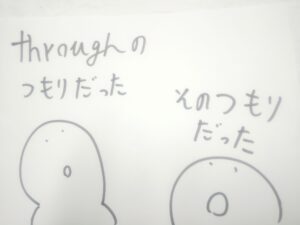 throughの
つもりだった
そのつもり
だった